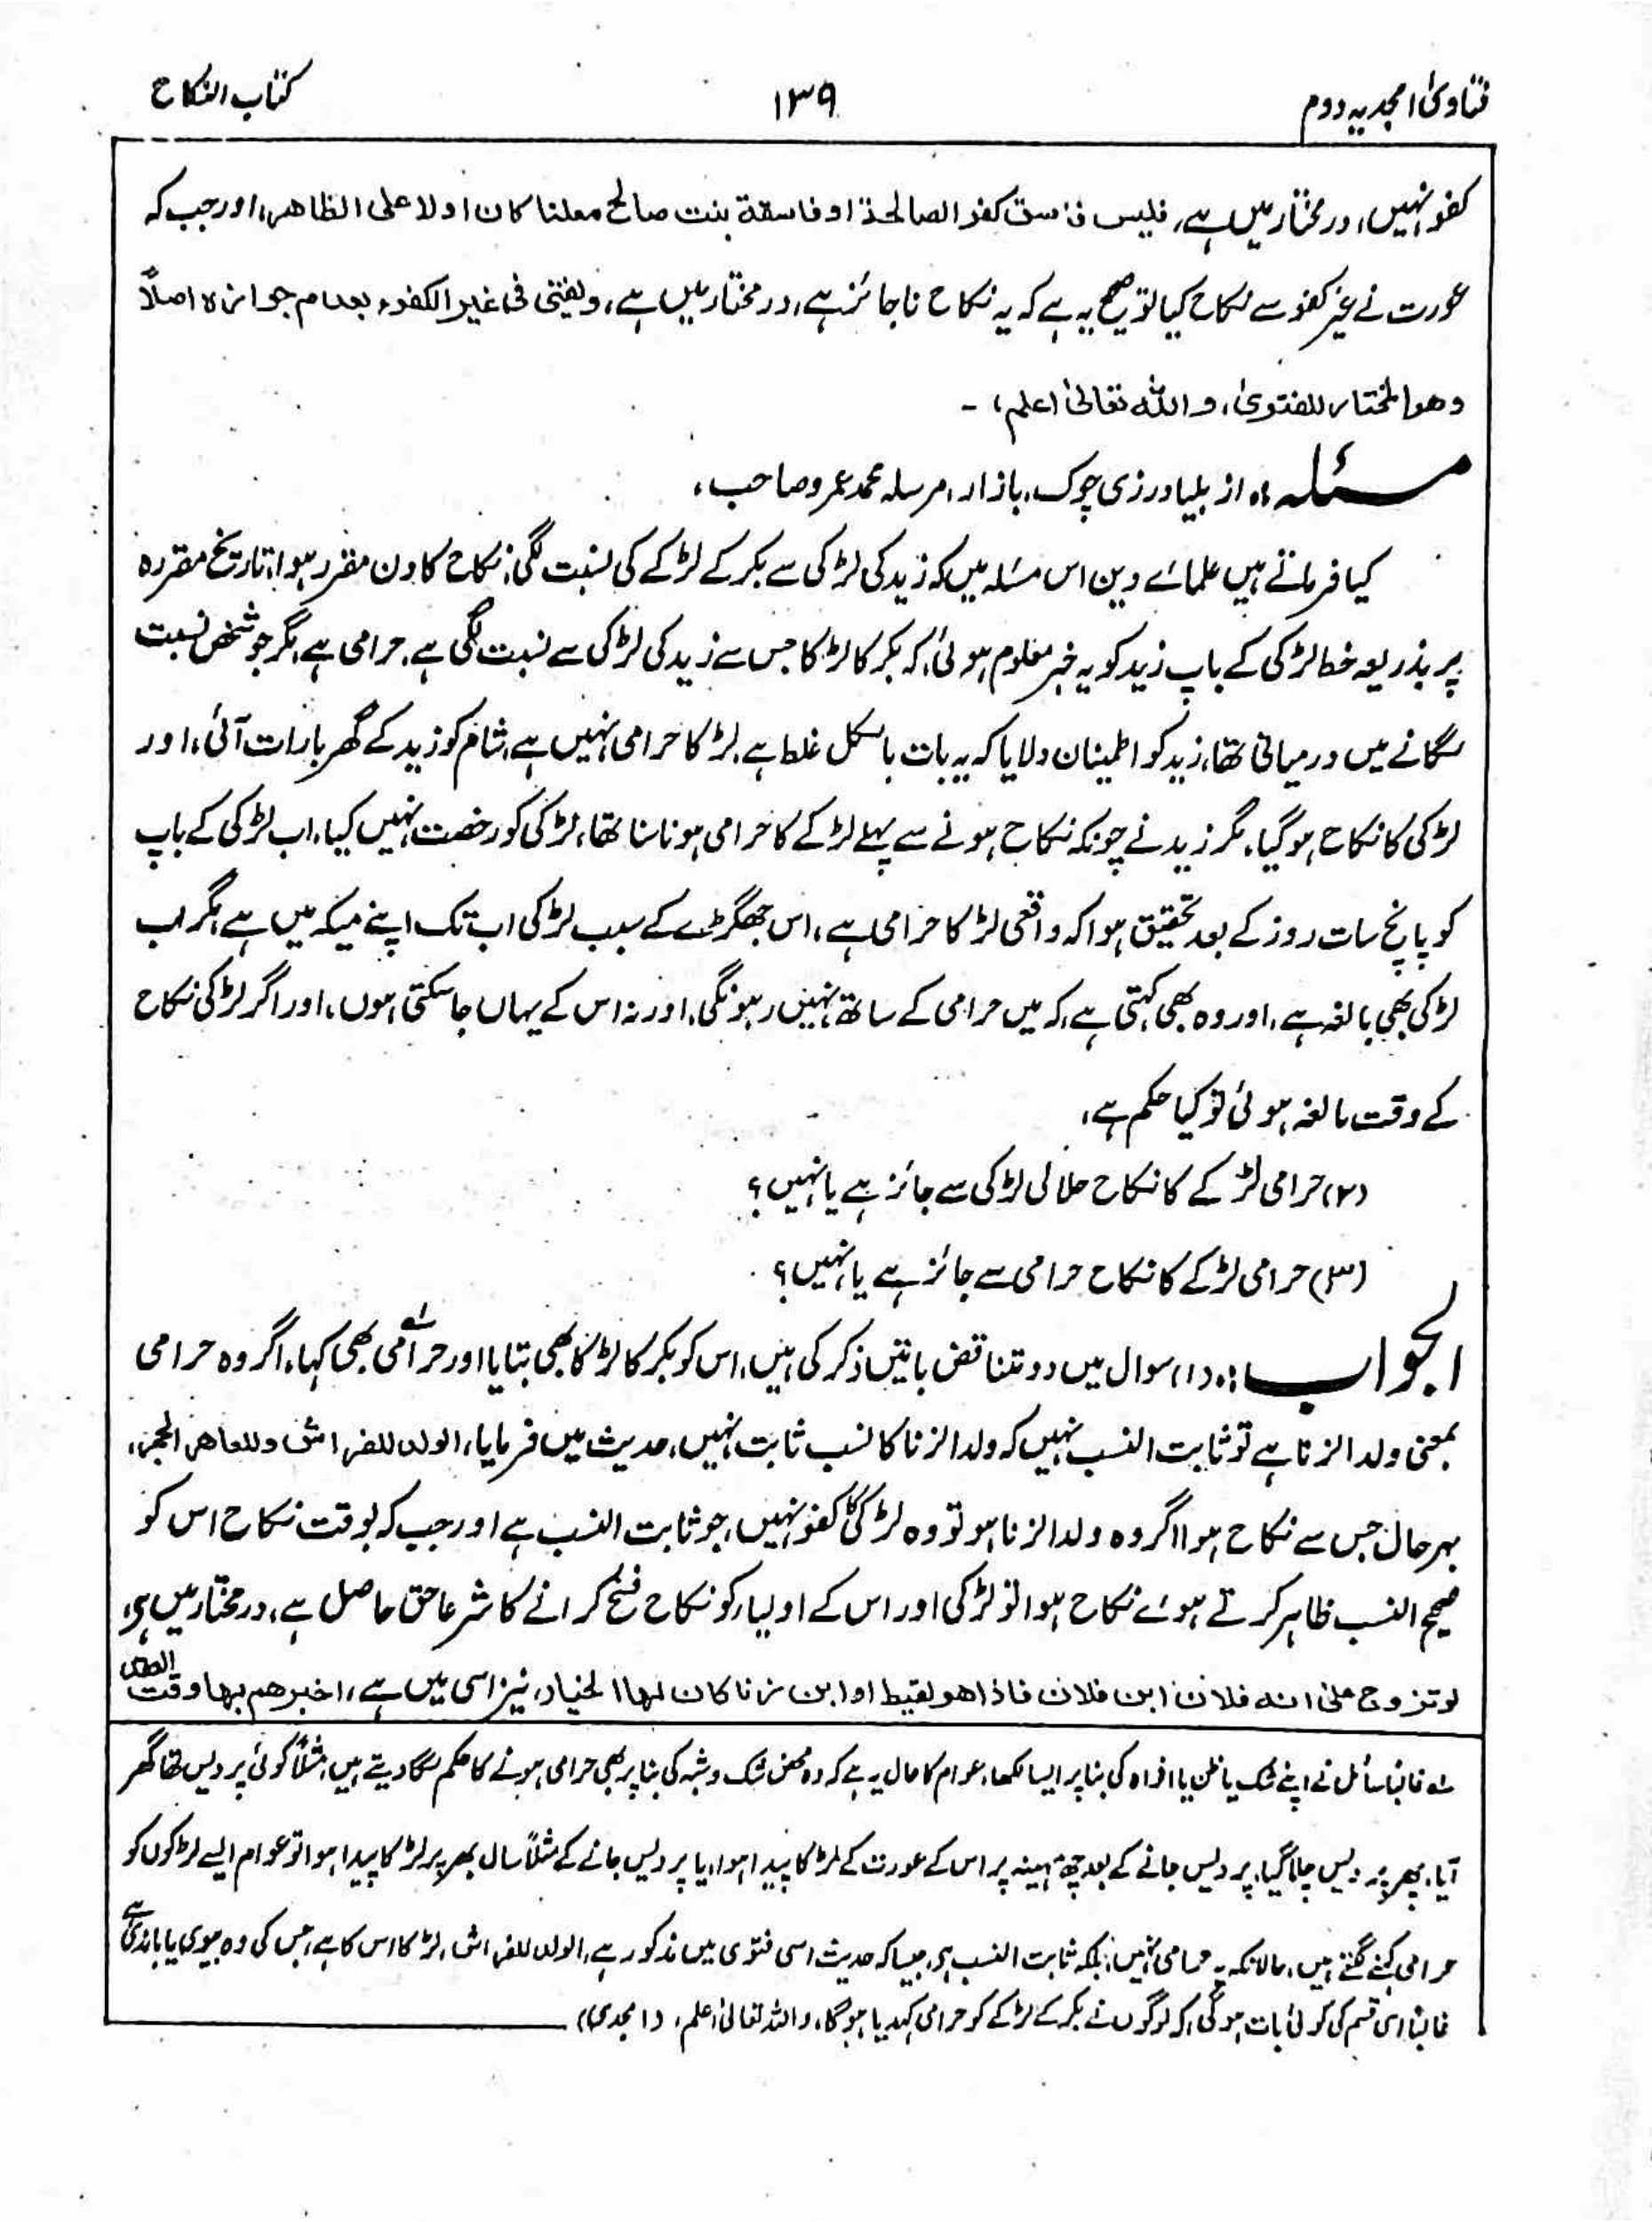 فتاویٰ امجدیہ دوم
۱۳۹
کتاب النکاح
کفو نہیں، در مختار میں ہے، فلیس فاسق کفؤ الصالحۃ او فاسقۃ بنت صالح معلنا کان اولا علی الظاہر، اور جب کہ
عورت نے غیر کفو سے نکاح کیا تو صحیح یہ ہے کہ یہ نکاح ناجائز ہے، در مختار میں ہے، ویفتیٰ فی غیر الکفوء بعدم جوازہ اصلاً
وھو المختار للفتویٰ، واللہ تعالیٰ اعلم، ۔
مسئلہ :۔ از بلیا درزی چوک، بازار، مرسلہ محمد عمرو صاحب،
کیا فرماتے ہیں علمائے دین اس مسئلہ میں کہ زید کی لڑکی سے بکر کے لڑکے کی نسبت لگی، نکاح کا دن مقرر ہوا، تاریخ مقررہ
پر بذریعہ خط لڑکی کے باپ زید کو یہ خبر معلوم ہوئی، کہ بکر کا لڑکا جس سے زید کی لڑکی سے نسبت لگی ہے، حرامی ہے، مگر جو شخص نسبت
لگانے میں درمیانی تھا، زید کو اطمینان دلایا کہ یہ بات بالکل غلط ہے، لڑکا حرامی نہیں ہے، شام کو زید کے گھر بارات آئی، اور
لڑکی کا نکاح ہو گیا، مگر زید نے چونکہ نکاح ہونے سے پہلے لڑکے کا حرامی ہونا سنا تھا، لڑکی کو رخصت نہیں کیا، اب لڑکی کے باپ
کو پانچ سات روز کے بعد تحقیق ہوا کہ واقعی لڑکا حرامی ہے، اس جھگڑے کے سبب لڑکی اب تک اپنے میکہ میں ہے، مگر اب
لڑکی بھی بالغہ ہے، اور وہ بھی کہتی ہے، کہ میں حرامی کے ساتھ نہیں رہونگی، اور نہ اس کے یہاں جا سکتی ہوں، اور اگر لڑکی نکاح
کے وقت بالغہ ہوئی تو کیا حکم ہے،
(۲) حرامی لڑکے کا نکاح حلالی لڑکی سے جائز ہے یا نہیں؟
(۳) حرامی لڑکے کا نکاح حرامی سے جائز ہے یا نہیں؟
الجواب :۔ (۱) سوال میں دو متناقض باتیں ذکر کی ہیں، اس کو بکر کا لڑکا بھی بتایا اور حرامی بھی کہا، اگر وہ حرامی
بمعنی ولد الزنا ہے تو ثابت النسب نہیں کہ ولد الزنا کا نسب ثابت نہیں، حدیث میں فرمایا، الولد للفراش وللعاھر الحجر،
بہر حال جس سے نکاح ہوا اگر وہ ولد الزنا ہو تو وہ لڑکی کا کفو نہیں، جو ثابت النسب ہے اور جب کہ بوقت نکاح اس کو
صحیح النسب ظاہر کرتے ہوئے نکاح ہوا تو لڑکی اور اس کے اولیاء کو نکاح فسخ کرانے کا شرعا حق حاصل ہے، در مختار میں ہے،
لو تزوج علی انہ فلان ابن فلان فاذا ھو لقیط او ابن زنا کان لہا الخیار، نیز اسی میں ہے، اخبرھم بہا وقت
لہ غالباً سائل نے اپنے شک یا ظن یا افواہ کی بنا پر ایسا لکھا، عوام کا حال یہ ہے کہ وہ محض شک و شبہ کی بنا پر بھی حرامی ہونے کا حکم لگا دیتے ہیں، مثلاً کوئی پردیس تھا گھر
آیا، پھر پردیس چلا گیا، پردیس جانے کے بعد چھ مہینہ پر اس کے عورت کے لڑکا پیدا ہوا، یا پردیس جانے کے مثلاً سال بھر پر لڑکا پیدا ہوا تو عوام ایسے لڑکوں کو
حرامی کہنے لگتے ہیں، حالانکہ یہ حرامی نہیں، بلکہ ثابت النسب ہے، جیسا کہ حدیث اسی فتوی میں مذکور ہے، الولد للفراش، لڑکا اس کا ہے، جس کی وہ بیوی یا باندی ہے
غالباً اسی قسم کی کوئی بات ہوگی، کہ لوگوں نے بکر کے لڑکے کو حرامی کہہ دیا ہوگا، واللہ تعالیٰ اعلم، (امجدی)